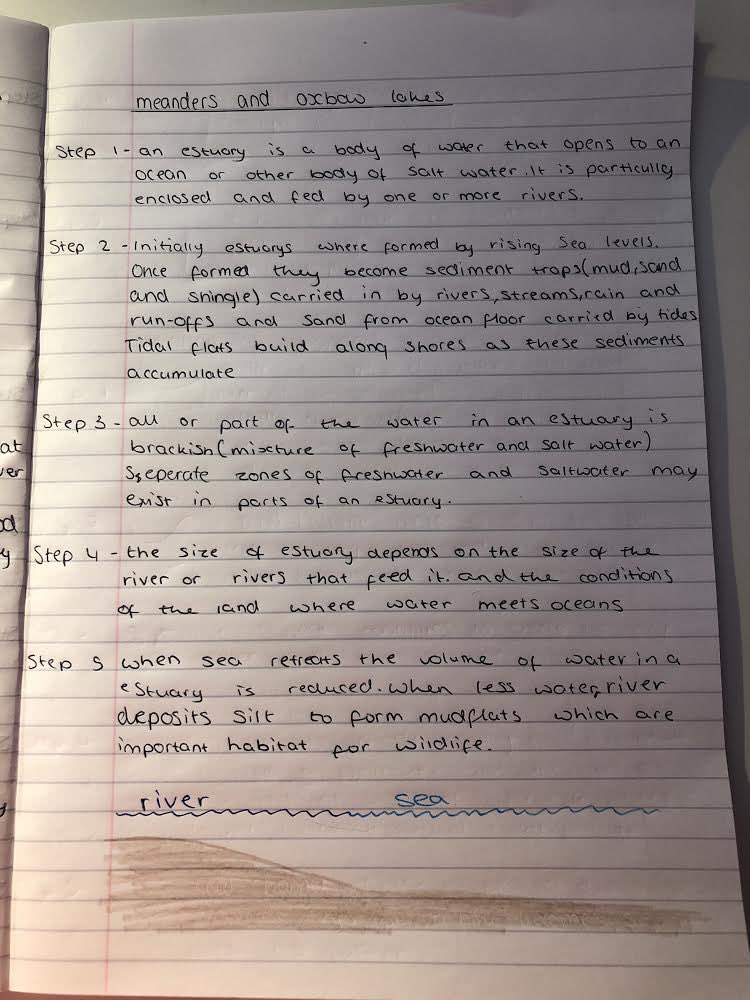 meanders and oxbow lakes
Step 1 - an estuary is a body of water that opens to an
ocean or other body of salt water. It is particully
enclosed and fed by one or more rivers.
Step 2 - Initially estuarys where formed by rising sea levels.
Once formed they become sediment traps(mud,sand
and shingle) carried in by rivers,streams,rain and
run-offs and sand from ocean floor carried by tides
Tidal flats build along shores as these sediments
accumulate
Step 3 - all or part of the water in an estuary is
brackish(mixture of freshwater and salt water)
Sseperate zones of freshwater and saltwater may
exist in parts of an estuary.
Step 4 - the size of estuary depends on the size of the
river or rivers that feed it. and the conditions
of the land where water meets oceans
Step 5 when sea retreats the volume of water in a
estuary is reduced. when less water, river
deposits silt to form mudflats which are
important habitat for wildlife.
river sea
at
ver
od
y
y